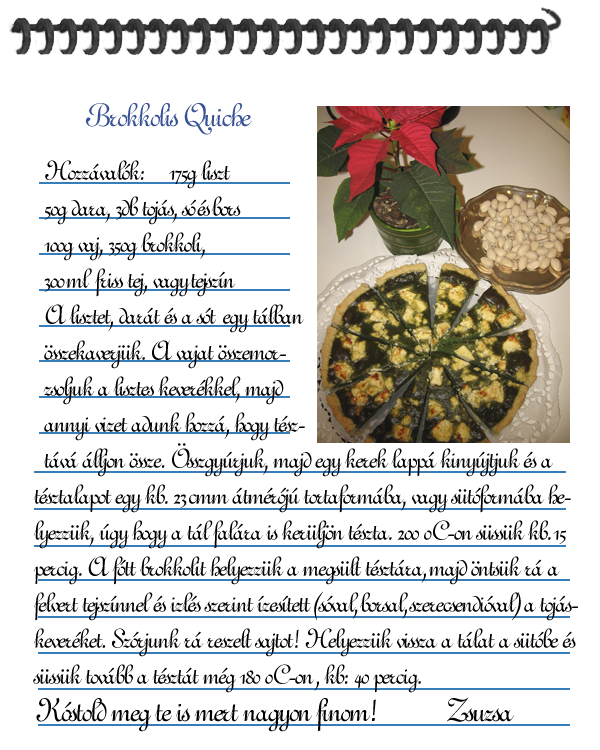 Brokkolis Quiche
Hozzávalók: 175g liszt
50g dara, 3db tojás, só és bors
100g vaj, 350g brokkoli,
300ml friss tej, vagy tejszín
A lisztet, darát és a sót egy tálban
öszekaverjük. A vajat öszemor-
zsoljuk a lisztes keverékkel, majd
annyi vizet adunk hozzá, hogy tész-
tává álljon össze. Öszgyúrjuk, majd egy kerek lappá kinyújtjuk és a
tésztalapot egy kb. 23 cmm átmérőjú tortaformába, vagy sütőformába he-
lyezzük, úgy hogy a tál falára is kerüljön tészta. 200 oC-on süssük kb. 15
percig. A főtt brokkolit helyezzük a megsült tésztára, majd öntsük rá a
felvert tejszínnel és izlés szerint ízesített (sóval, borsal, szerecsendióval) a tojás-
keveréket. Szórjunk rá reszelt sajtot! Helyezzük vissza a tálat a sütőbe és
süssük tovább a tésztát még 180 oC-on, kb: 40 percig.
Kóstold meg te is mert nagyon finom! Zsuzsa